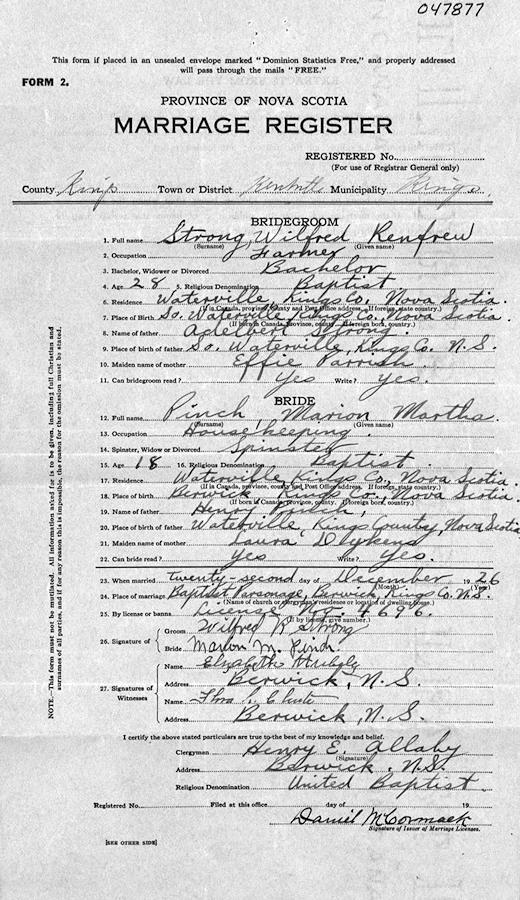 047877
This form if placed in an unsealed envelope marked "Dominion Statistics Free," and properly addressed
will pass through the mails "FREE."
FORM 2.
PROVINCE OF NOVA SCOTIA
MARRIAGE REGISTER
REGISTERED No.
(For use of Registrar General only)
County Kings Town or District Kentville Municipality Kings
BRIDEGROOM
1. Full name Strong, Wilfred Renfrew
(Surname) (Given name)
2. Occupation Farmer
3. Bachelor, Widower or Divorced Bachelor
4. Age 28 5. Religious Denomination Baptist
6. Residence Waterville, Kings Co. Nova Scotia.
(If in Canada, province, county and Post Office address. If foreign, state country.)
7. Place of Birth So. Waterville, Kings Co. Nova Scotia.
(If born in Canada, province, county. If foreign, country.)
8. Name of father Adelbert Strong.
9. Place of birth of father So. Waterville, Kings Co. N.S.
10. Maiden name of mother Effie Parrish
11. Can bridegroom read? Yes Write? Yes.
BRIDE
12. Full name Pinch, Marion Martha.
(Surname) (Given name)
13. Occupation Housekeeping.
14. Spinster, Widow or Divorced Spinster
15. Age 18 16. Religious Denomination Baptist
17. Residence Waterville, Kings Co., Nova Scotia.
(If in Canada, province, county and Post Office address. If foreign, state country.)
18. Place of birth Berwick, Kings Co., Nova Scotia.
(If born in Canada, province, county. If foreign, country.)
19. Name of father Henry Pinch,
20. Place of birth of father Waterville, Kings County, Nova Scotia
21. Maiden name of mother Laura Dykens
22. Can bride read? Yes Write? Yes.
23. When married Twenty-second day of December 1926
(Month) (Year)
24. Place of marriage Baptist Parsonage, Berwick, Kings Co. N.S.
(Name of church or clergyman's residence or location of dwelling house.)
25. By license or banns License No. 4696.
(If by license, give number.)
26. Signature of Groom Wilfred R Strong
Bride Marion M. Pinch
27. Signatures of Witnesses
Name Elizabeth
Address Berwick, N.S.
Name Chute
Address Berwick, N.S.
I certify the above stated particulars are true to the best of my knowledge and belief.
Clergyman Henry E. Allaby
(Signature)
Address Berwick, N.S.
Religious Denomination United Baptist
Registered No. Filed at this office day of 19
Daniel McCormack
Signature of Issuer of Marriage Licenses.
[SEE OTHER SIDE]
NOTE.—This form must not be mutilated. All information asked for is to be given, including full Christian and
surnames of all parties, and if for any reason this is impossible, the reason for the omission must be stated.